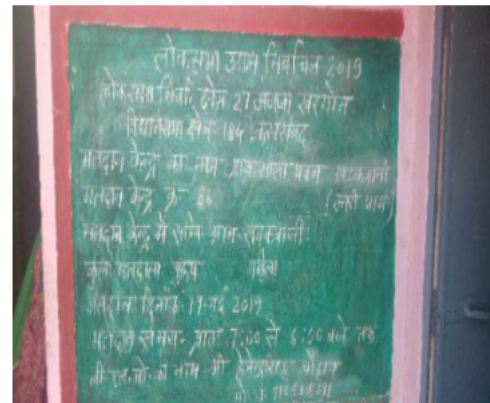 लोकसभा आम निर्वाचन 2019
लोकसभा निर्वा. क्षेत्र 27 अजजा खरगोन
विधानसभा क्षेत्र 184 कसरावद
मतदान केन्द्र का नाम प्राथ.शाला भवन खटकवानी
मतदान केन्द्र क्र- 86 (उत्तरी भाग)
मतदान केन्द्र में सम्मि. ग्राम-खटकवानी
कुल मतदाता पुरुष महिला
मतदान दिनांक 19 मई 2019
मतदान समय- प्रातः 7:00 से 6:00 बजे तक
बी.एल.ओ.का नाम श्री चौहान
मो.